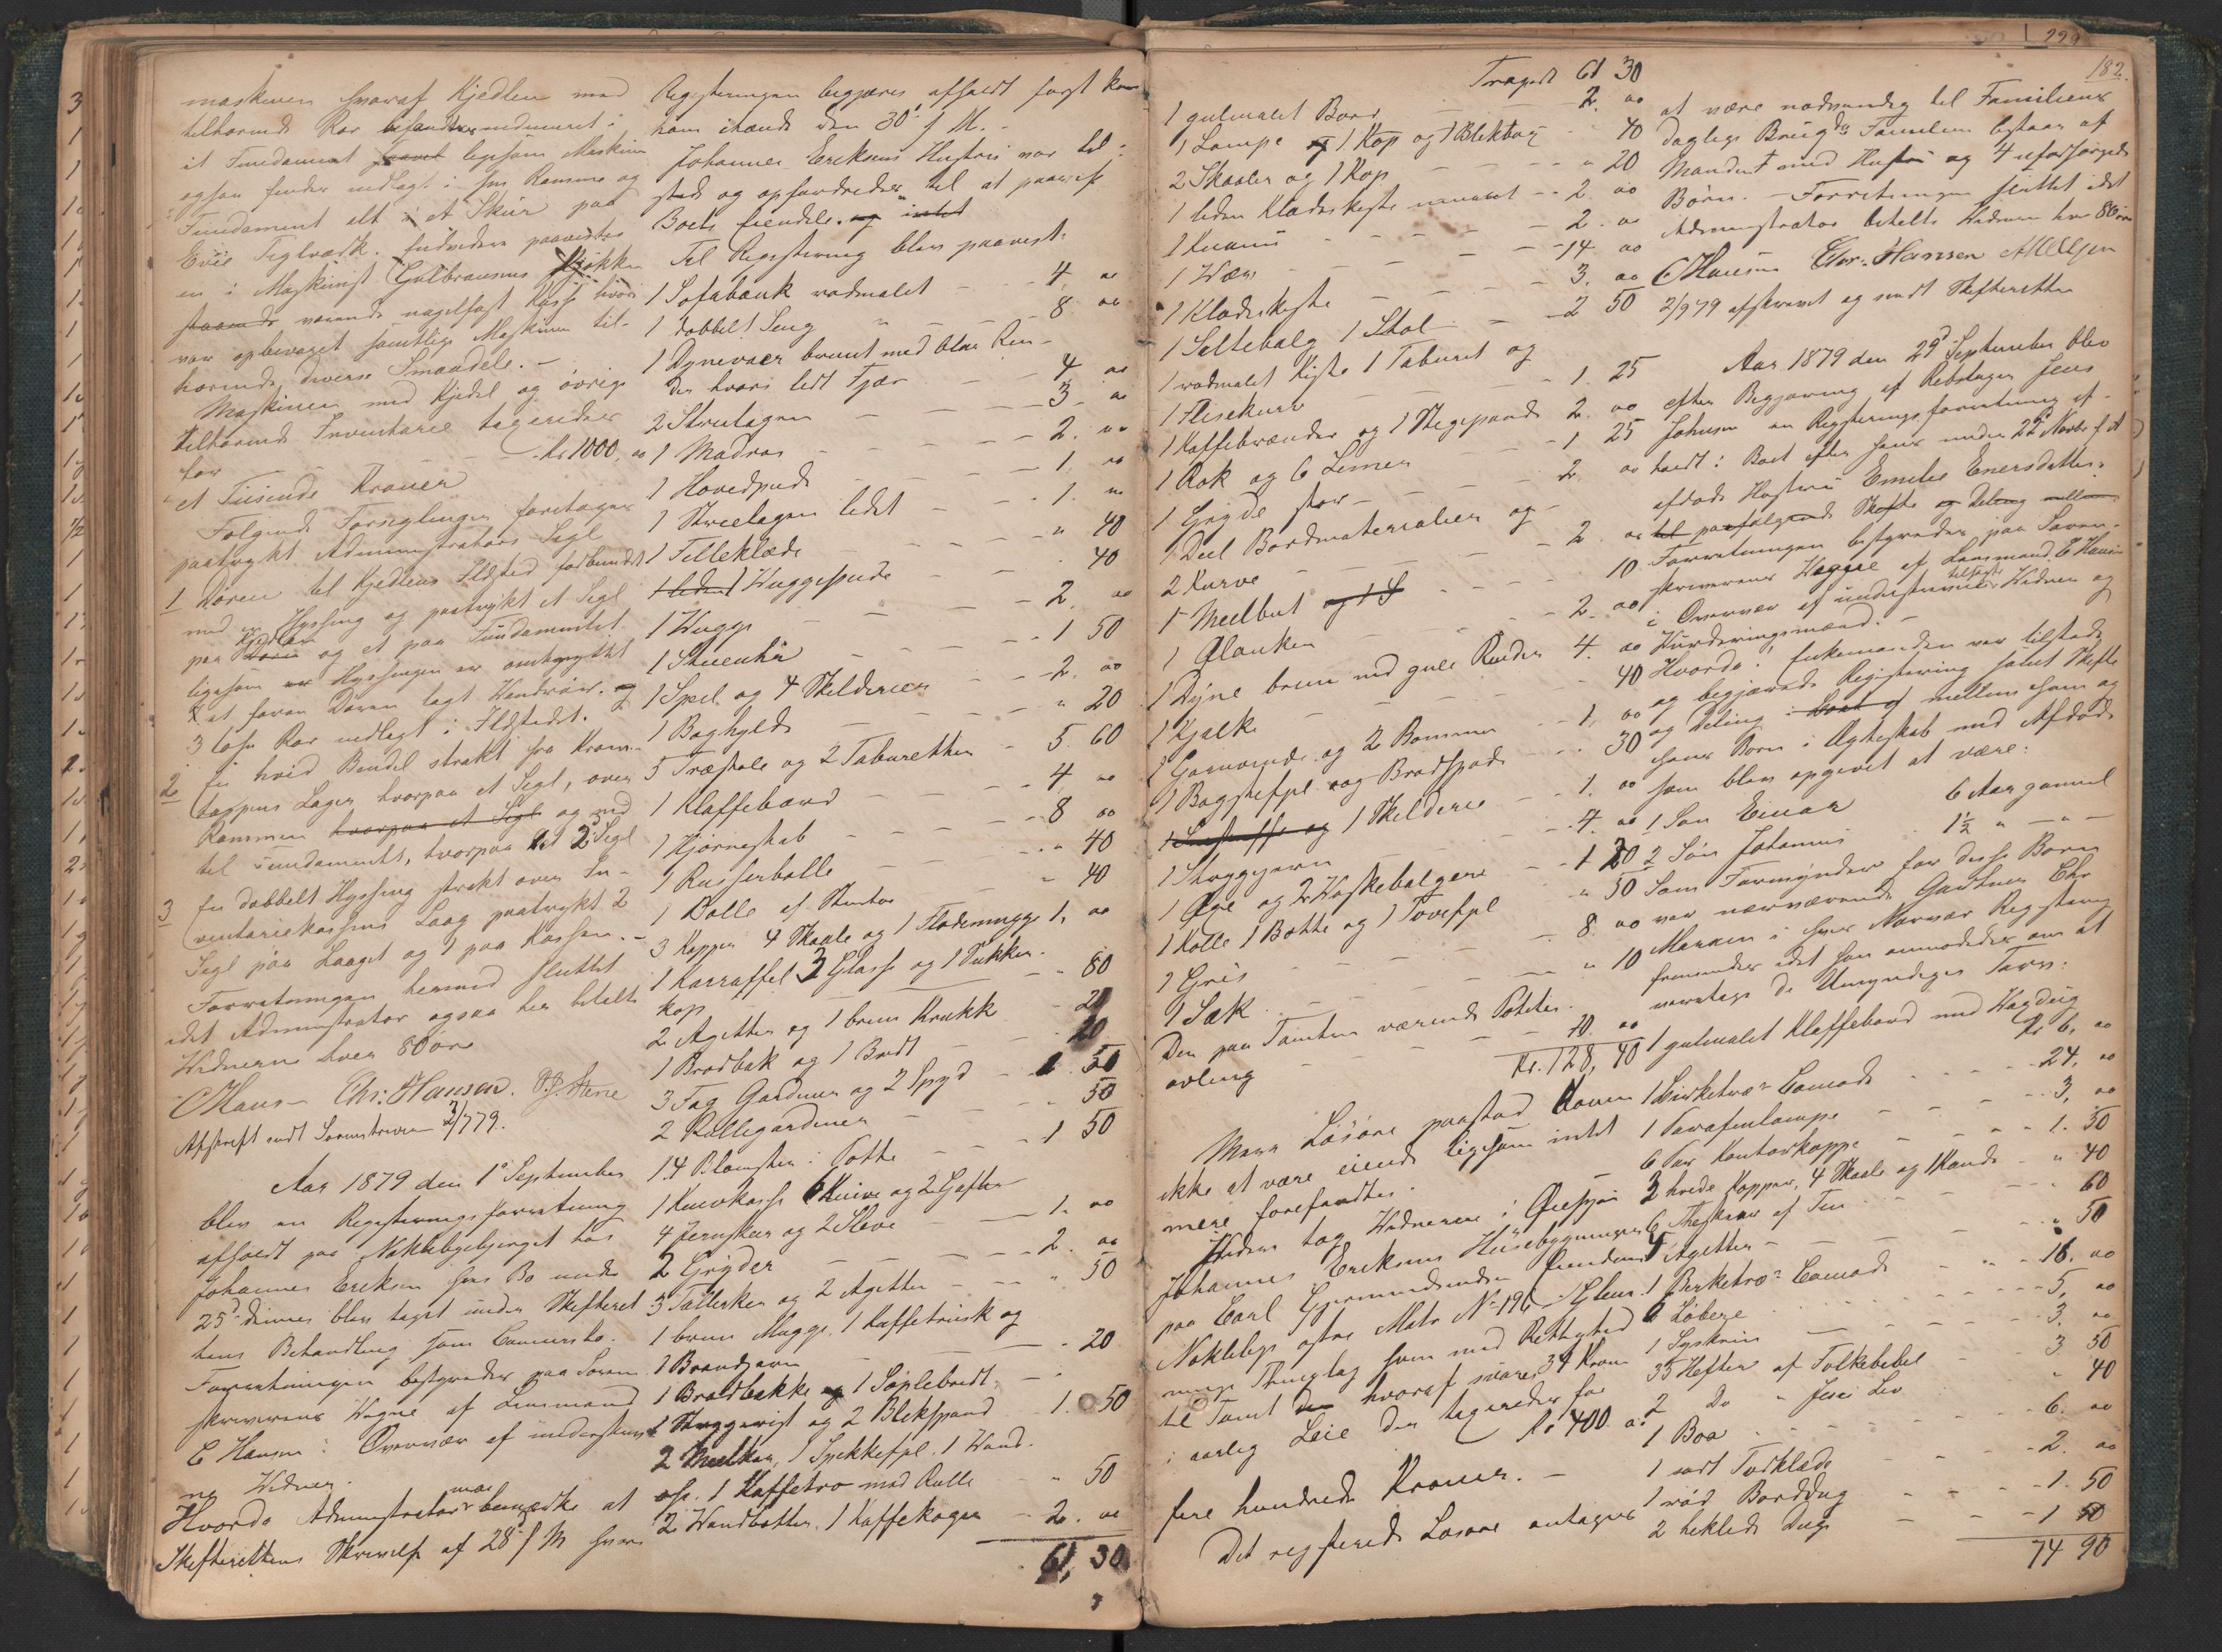 maskinen hvoraf Kjedlen med
tilhørende Rør befandtes indmuret i
et Fundament saavel ligesom Maskin
ogsaa findes nedlagt i sin Ramme og
Fundament alt i et Skur paa
Evie Teglværk. Endvidere paavistes
en i Maskinist Gulbransens Kjøkken
staaende værende nagelfast Kasse hvori
var opbevaret samtlige Maskinen til-
hørende diverse Smaadele. -
Maskinen med Kjedel og øvrige
tilhørende Inventarie taxeredes
for - - - kr 1000, 00
et Tusinde Kroner
Følgende Forseglinger foretages
paatrykt Administrators Segl
1 Døren til Kjedlens Ildsted forbundet
med en Hyssing og paatrykt et Segl
paa Kjedlen Døren og et paa Fundamentet
ligesom er Hyssingen er omtrykket
at foran Døren lagt
3 løse Rør nedlagt i Ildstedet.
2 En hvid Bendel strakt fra Kram-
tappens Lager hvorpaa et Segl, over
Rammen hvorpaa et Segl og ned
til Fundamentet, hvorpaa et 2d Segl
3 En dobbelt Hyssing strakt over In-
ventariekassens Laag paatrykt 2
Segl paa Laaget og 1 paa Kassen. -
Forretningen hermed sluttet
idet Administrator ogsaa her betalte
Vidnerne hver 80 øre
CHansen Chr: Hansen.
Afskrift sendt Sorenskriveren 3/9 79.
Aar 1879 den 1ste September
blev en Registreringsforretning
afholdt paa Noklebyebjerget hos
Johannes Eriksen hvis Bo under
25d dennes blev taget under Skifteret
tens Behandling som Concursbo.
Forretningen bestyredes paa Soren-
skriverens Vegne af Lensmand
C Hansen i Overvær af underskrev-
ne Vidner.
Hvorda Administrator bemærke at
Skifterettens Skrivelse af 28d f M hvori
Registreringen begjæres afholdt først kom
ham ihænde den 30' f M. -
Johannes Eriksens Hustru var til-
stede og opfordredes til at paavise
Boets Eiendele. og intet
Til Registrering blev paavist:
1 Sofabænk rødmalet - - 4, 00
1 dobbelt Seng " - - 8 00
1 Dynevaer brunt med blaa Ren-
der hvori lidt Fjær - - 4 00
2 Strielagen - - 3. 00
1 Madras - - - 2. 00
1 Hovedpude - - - 1. 00
1 Strielagen lidet - - 1. 00
1 Filleklæde - - " 40
1 liden 1 Vuggepude - - . 40
1 Vugge - - 2. 00
1 Stueuhr - - - 1 50
1 Speil og 4 Skilderier - - 2. 00
1 Boghylde - - " 20
5 Træstole og 2 Taburetter - 5. 60
1 Klaffebord - - - 4, 00
1 Hjørneskab - - - 8 00
1 Punsjebolle - - - " 40
1 Bolle af Stentøi - - " 40
3 Kopper 4 Skaale og 1 Flødemugge 1, 00
1 Karraffel 3 Glasse og 1 Sukker-
kop - - - " 80
2 Asjetter og 1 brun Krukke - 20
1 Brødbak og 1 Bret - - 20
3 Fag Gardiner og 2 Spyd - 1. 50
2 Rullegardiner - - " 50
14 Blomster i Potte - - 1 50
1 Knivkasse 6 Knive og 2 Gafler
4 Jernskeer og 2 Sleve - - 1. 00
2 Gryder - - - 2. 00
3 Tallerker og 2 Asjetter - - " 50
1 brun Mugge, 1 Kaffetrusk og
1 Brændjern - - - 20
1 Brødbakke og 1 Søplebrett -
1 Stryggerist og 2 Blikspand 1. 50
2 Melkar, 1 Spikkefjel 1 Vand-
øse. 1 Kaffetro med Rulle " 50
2 Vandbøtter. 1 Kaffekager - 2. 00
61, 30
229
182.
Tragert 61 30
1 gulmalet Bord - - 2. 00
1 Lampe og 1 Kop og 1 Blikbog - 40
2 Skaaler og 1 Kop - - " 20
1 liden Klædeskiste umalet - 2. 00
1 - - - 2. 00
1 - - - 14 00
1 Klædeskiste - - 3. 00
1 Saltebalg 1 Stol - - 2 50
1 rødmalet Kiste 1 Taburet og
1 Flisekurv - - - 1. 25
1 Kaffebrænder og 1 Stegepande 2. 00
1 Rok og 6 Sneller - - 1 25
1 Gryde stor - - - 2. 00
1 Deel Bordmaterialier og
2 Kurve - - - 2. 00
1 Meelbut og 1 S - - 10
1 - - - 2. 00
1 Dyne brun med gule Render 4. 00
1 Kjælke - - - 40
1 Garnvinde og 2 Bommer - 1, 00
1 Bagstefjel og Brødspade - 30
1 Skilderie - 1. 00
1 Stryggejern - - 4. 00
1 Øxe og 2 Vaskebalger - 1 20
1 Kolle 1 Bøtte og 1 - " 50
1 Gris - - - 8. 00
1 Sæk - - - " 10
Den paa Tomten værende Potetes-
avling - - - 10. 00
Kr. 128, 40
Mere Løsøre paastod Konen
ikke at være eiende ligesom intet
mere forefandtes.
Videre tog Vidnerne i Øiesyn
Johannes Eriksens Huusebygninger
paa Carl Gjermundsens Eiendom
Nokleby østre Matr No 196 i Glem-
minge Thinglag som med Rettighed
til Tomt den hvoraf svares 34 Kroner
i aarlig Leie der taxeredes for
Kr 400 00
fire hundrede Kroner. -
Det registrerede Løsøre antages
at være nødvendig til Familiens
daglige Brug da Familien bestaar af
Manden med Hustru og 4 uforsørgede
Børn. - Forretningen sluttet idet
Administrator betalte Vidnerne hver 80 øre
CHansen Chr. Hansen
2/9 79 afskrevet og sendt Skifteretten
Aar 1879 den 29d September blev
efter Begjæring af Rebslager Jens
Johnsen en Registreringsforretning af-
holdt i Boet efter hans under 22d Novbr f A
afdøde Hustru Emelie Enersdatter.
til paafølgende Skifte og Deling mellem
Forretningen bestyredes paa Soren-
skriverens Vegne af Lensmand C Hansen
i Overvær af underskrevne tilsagte Vidner og
Vurderingsmænd. -
Hvorda: Enkemanden var tilstede
og begjærede Registrering samt Skifte
og Deling i Boet af mellem ham og
hans Børn i Ægteskab med Afdøde
som blev opgivet at være:
1 Søn Einar 6 Aar gammel
2 Søn Johannes 1½ " - " -
Som Formynder for disse Børn
var nærværende Gartner Chr
i hvis Nærvær Registrering
fremmedes idet han anmodedes om at
varetage de Umyndiges Tarv:
1 gulmalet Klaffebord med Voxdug
Kr 6, 00
1 Birketræs Comode - - 24. 00
1 Parafinlampe - - 3, 00
6 Par Kontorkoppe - - 1. 50
2 hvide Kopper, 4 Skaale og 1 Kande " 40
6 Theskeer af Tin - - 60
4 Asjetter - - - " 50
1 Birketræs Comode - - 16. 00
6 Løbere - - - 5, 00
1 Syskrin - - 3. 00
35 Hefter af Folkebibel - 3 50
2 Do " Jesu Liv " 40
1 Boa - - - 6. 00
1 sort Torklæde - - 2. 00
1 rød Borddug - - 1. 50
2 heklede Duge - - 1 50
74 90